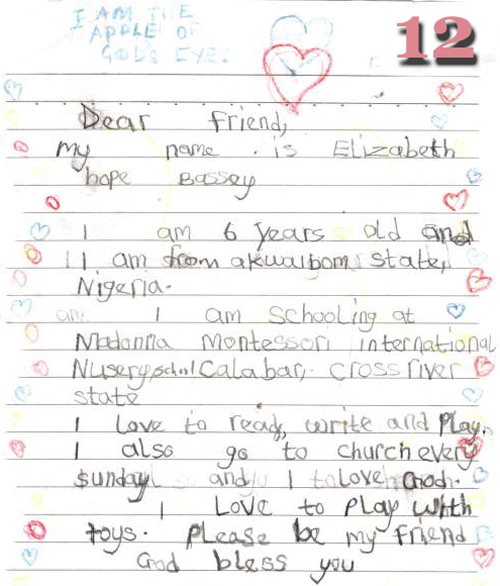 I AM THE
APPLE OF
GOD'S EYE.
12
Dear friend,
my name . is Elizabeth
hope Bassey
I am 6 years old and
I am from akwaibom state,
Nigeria.
I am schooling at
Madonna Montessori international
Nusery, schol Calabar, cross river
state
I Love to read, write and Play.
I also go to church every
sunday and I Love God.
I Love to play with
toys. please be my friend
God bless you